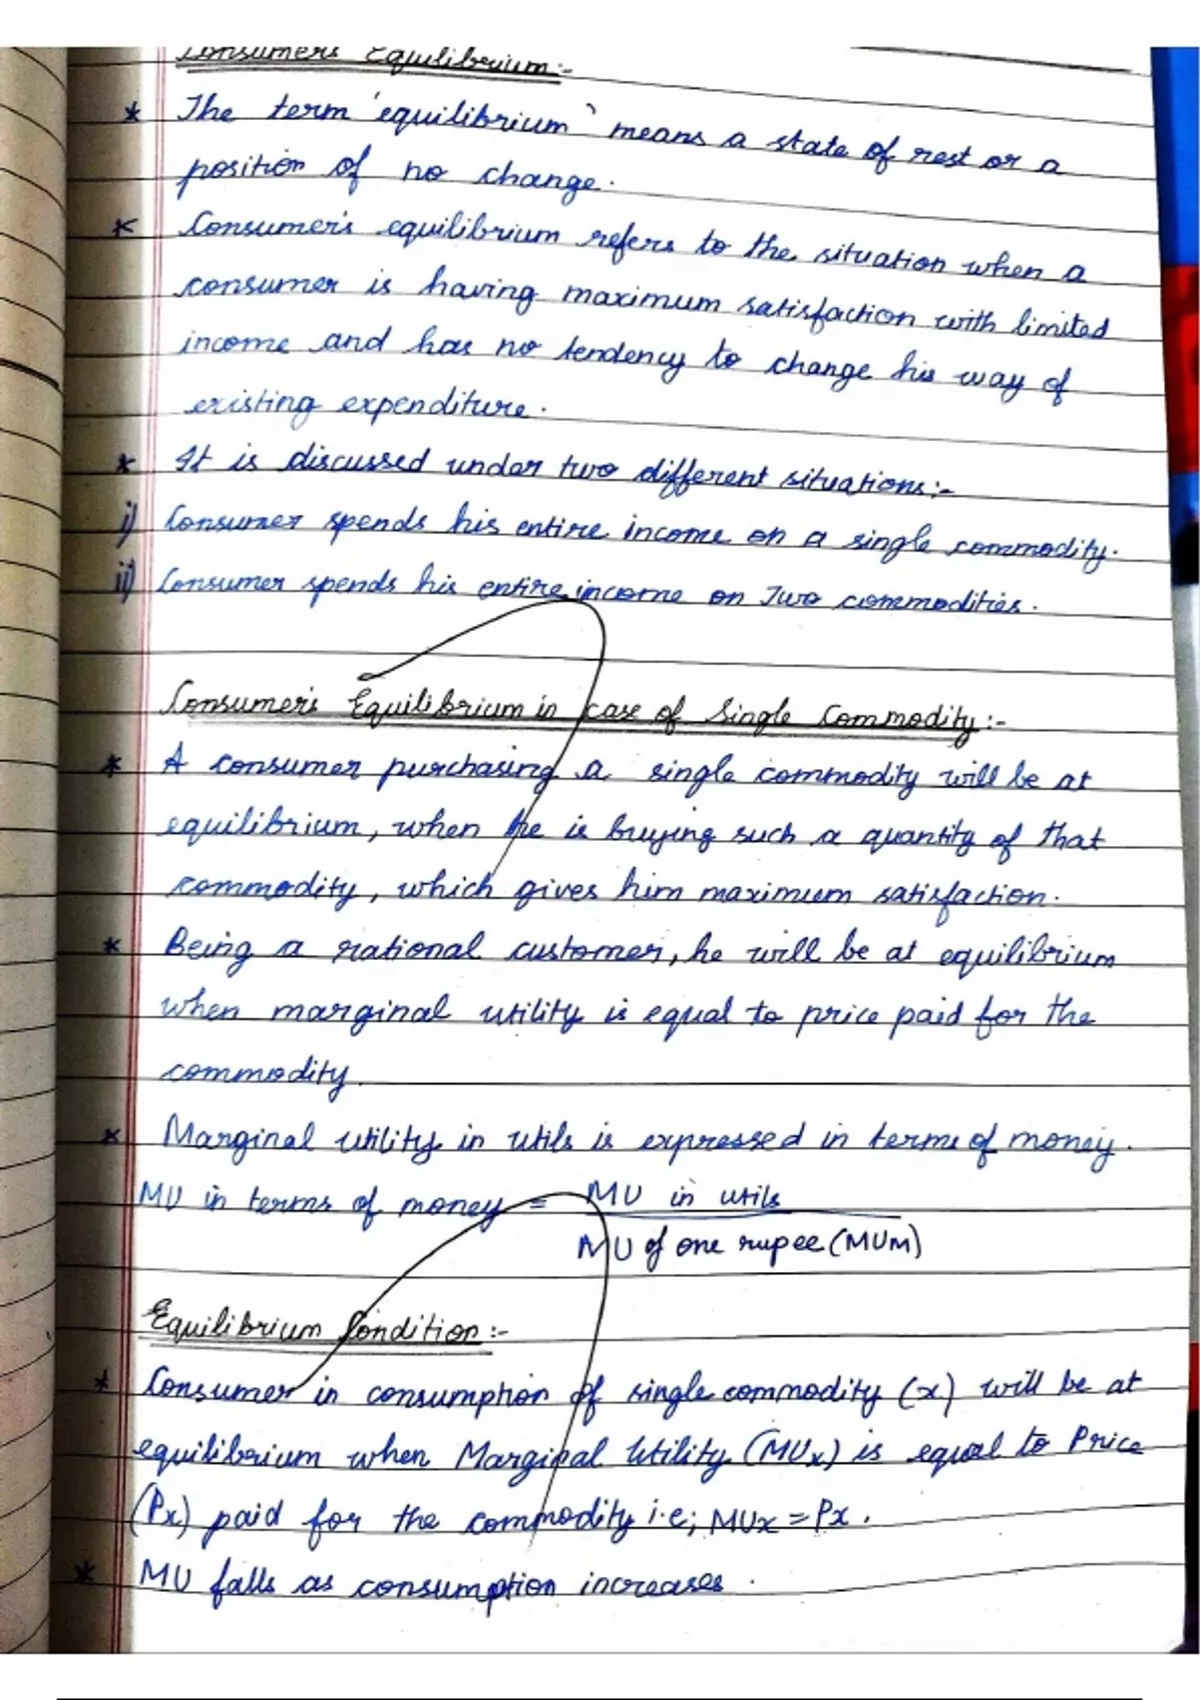 Consumer's Equilibrium:-
* The term 'equilibrium' means a state of rest or a
position of no change.
* Consumer's equilibrium refers to the situation when a
consumer is having maximum satisfaction with limited
income and has no tendency to change his way of
existing expenditure.
* It is discussed under two different situations:-
i) Consumer spends his entire income on a single commodity.
ii) Consumer spends his entire income on Two commodities.
Consumer's Equilibrium in case of Single Commodity:-
* A consumer purchasing a single commodity will be at
equilibrium, when he is buying such a quantity of that
commodity, which gives him maximum satisfaction.
* Being a rational customer, he will be at equilibrium
when marginal utility is equal to price paid for the
commodity.
* Marginal utility in utils is expressed in terms of money.
MU in terms of money = MU in utils
MU of one rupee (MUM)
Equilibrium Condition:-
* Consumer in consumption of single commodity (x) will be at
equilibrium when Marginal Utility (MUx) is equal to Price
(Px) paid for the commodity i.e; MUx = Px.
* MU falls as consumption increases.